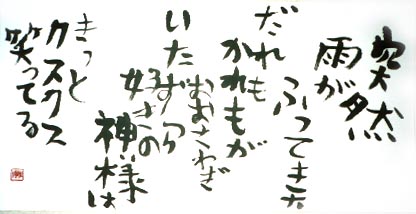 突然
雨が
ふってきた
だれも
かれもが
おおさわぎ
いたずら
好きの
神様は
きっと
クスクス
笑ってる